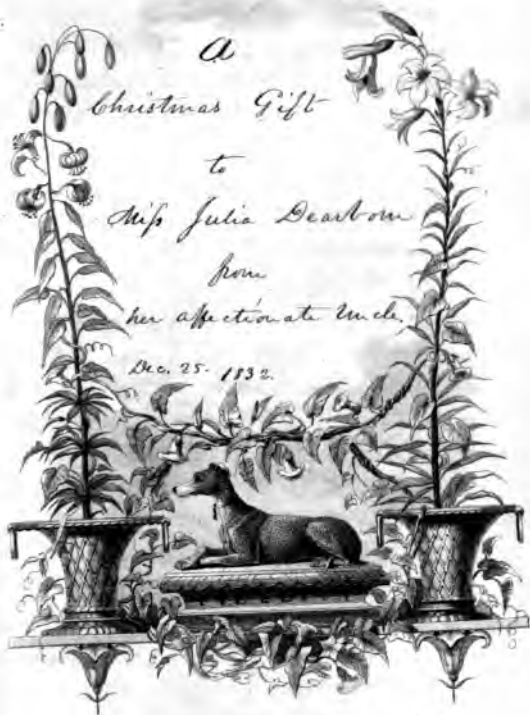 A
Christmas Gift
to
Miſs Julia Dearborn
from
her affectionate Uncle.
Dec. 25. 1832.